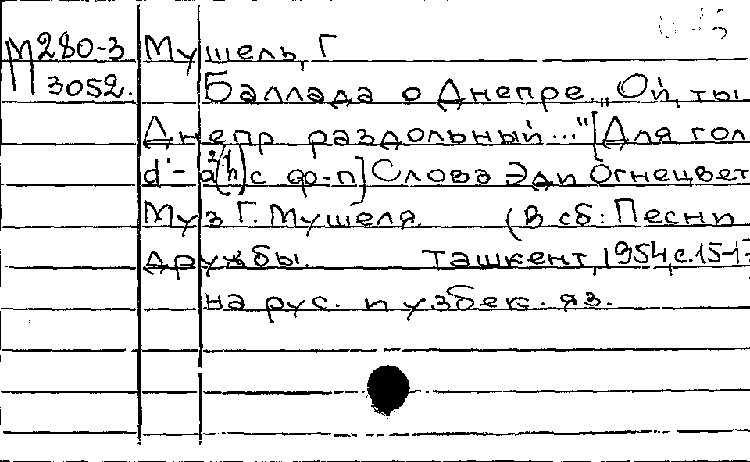 М280-3 Мушель, Г
3052. Баллада о Днепре. „Ой, ты
Днепр раздольный..." [Для гол
d'-a²(h) с ф-п] Слова Эди Огнецвет
Муз Г. Мушеля. (В сб: Песни
дружбы. Ташкент, 1954, с. 15-17
на рус. и узбек. яз.